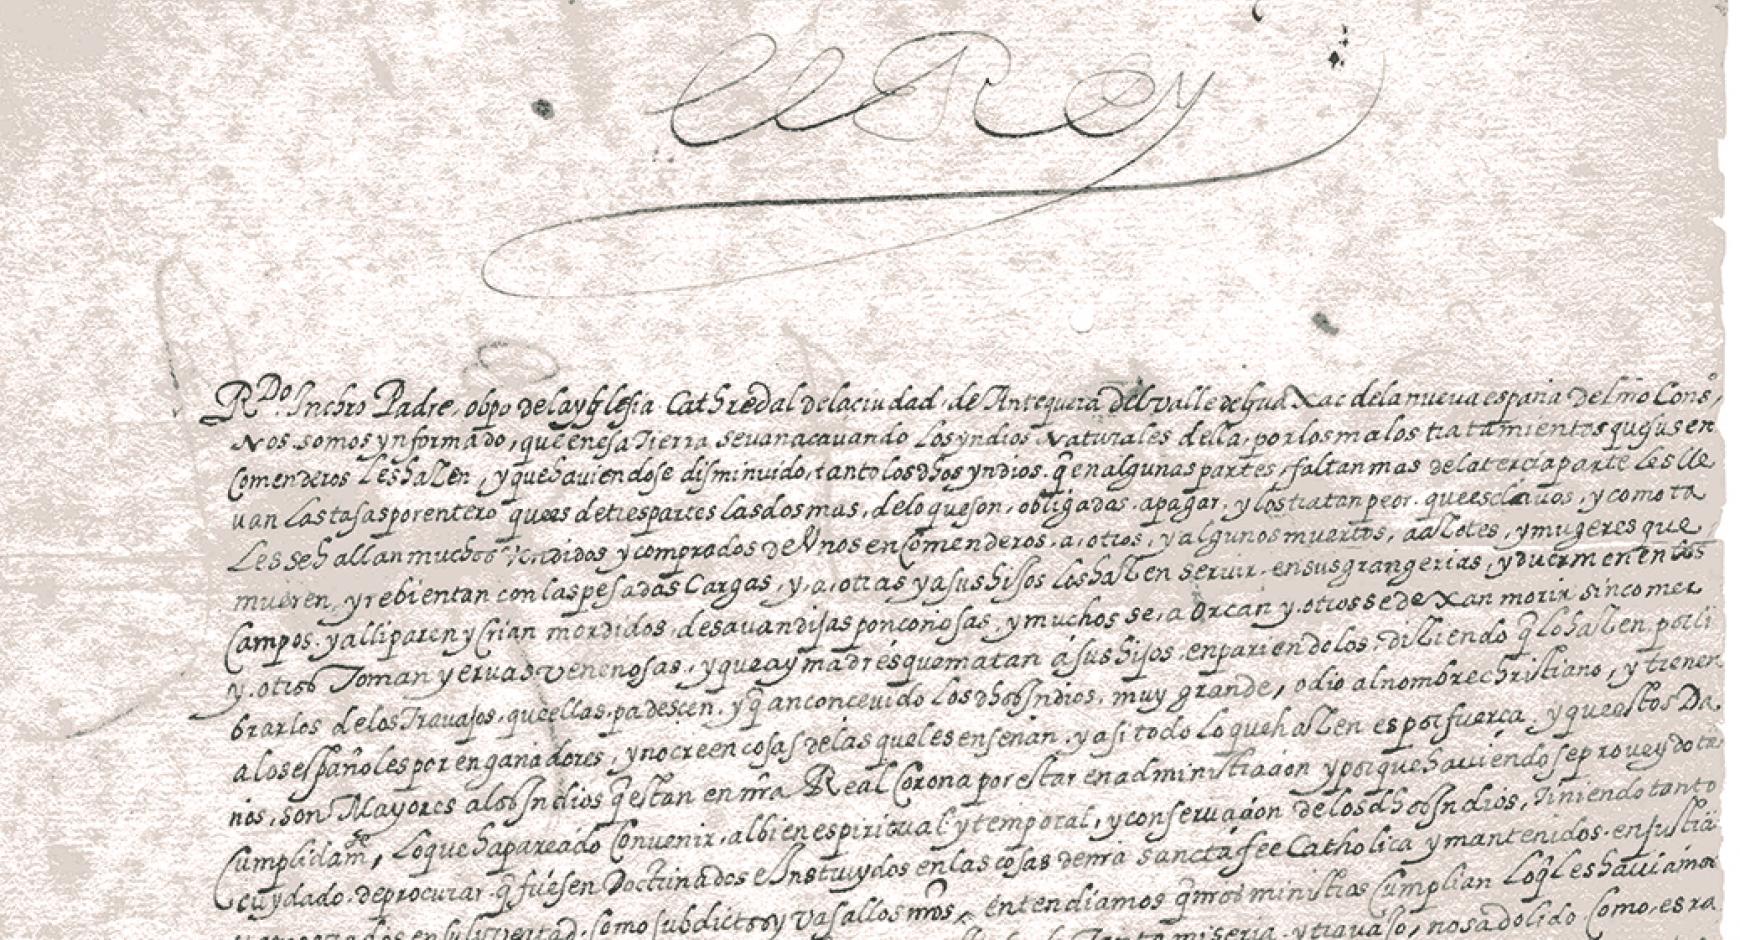 el Rey
R.do Inchro Padre, obpo de la yglesia Cathredal de la ciudad de Antequera del valle de Guaxac de la nueua españa del mio Cons.o
Nos somos ynformado, que en esa Tierra se uan acauando los yndios Naturales della, por los malos tratamientos que sus en
Comenderos les hazen, y que hauiendose disminuido, tanto los dhos yndios. q̃ en algunas partes, faltan mas de la tercia parte les lle
uan las tasas por entero que es de tres partes las dos mas, de lo que son, obligados, a pagar, y los tratan peor. que esclauos, y como ta
les se hallan muchos vendidos y comprados de Vnos en Comenderos, a, otros, y algunos muertos, a açotes, y mugeres que
mueren, y rebientan con las pesadas Cargas, y, a, otras y a sus hijos los hazen seruir. en sus grangerias, y duermen en los
Campos. y alli paren y Crian mordidos, de sauandijas ponçoñosas, y muchos se, a Orcan y. otros se dexan morir sin comer
y. otros Toman yeruas venenosas, y que ay madres que matan á sus hijos. en pariendolos, diziendo q̃ lo hazen por li
brarlos de los Trauajos, que ellas, padescen. y q̃ an conceuido los dhos Indios, muy grande, odio al nombre christiano, y tienen
a los españoles por engañadores, y no creen cosas de las que les enseñan, y asi todo lo que hazen es por fuerça, y que estos Da
ños, son Mayores a los Indios q̃ estan en nr̃a Real Corona por estar en administraçion y porque hauiendose proueydo tan
Cumplidam.te, lo que ha pareçido Conuenir, al bien espiritual y temporal, y conseruaçion de los dhos Indios, Tiniendo tanto
Cuydado de procurar. q̃ fuesen Doctrinados e Instruydos en las cosas de nr̃a sancta fee Catholica y mantenidos. en Justiçia
en su liuertad. Como subdictos y vasallos nr̃os, entendiamos q̃ nr̃os ministros Cumplian lo q̃ les hauiamos
Tanta miseria y trauajo, nos a dolido Como, es ra